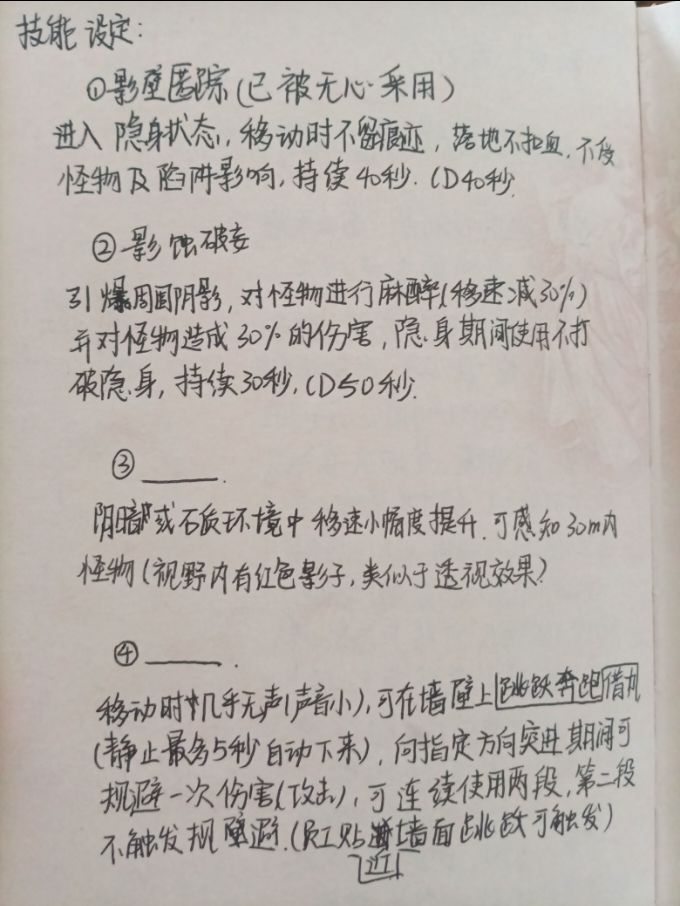 技能设定:
①影壁匿踪(已被无心采用)
进入隐身状态,移动时不留痕迹,落地不扣血.不受
怪物及陷阱影响,持续40秒.CD40秒.
②影蚀破妄
引爆周围阴影,对怪物进行麻醉(移速减30%)
并对怪物造成30%的伤害,隐身期间使用不打
破隐身,持续30秒,CD50秒.
③____.
阴暗或石质环境中移速小幅度提升.可感知30m内
怪物(视野内有红色影子,类似于透视效果)
④____.
移动时几乎无声(声音小),可在墙壁上跳跃奔跑借力
(静止最多5秒自动下来),向指定方向突进期间可
规避一次伤害(攻击),可连续使用两段,第二段
不触发规避.(员工贴近墙面跳跃可触发)